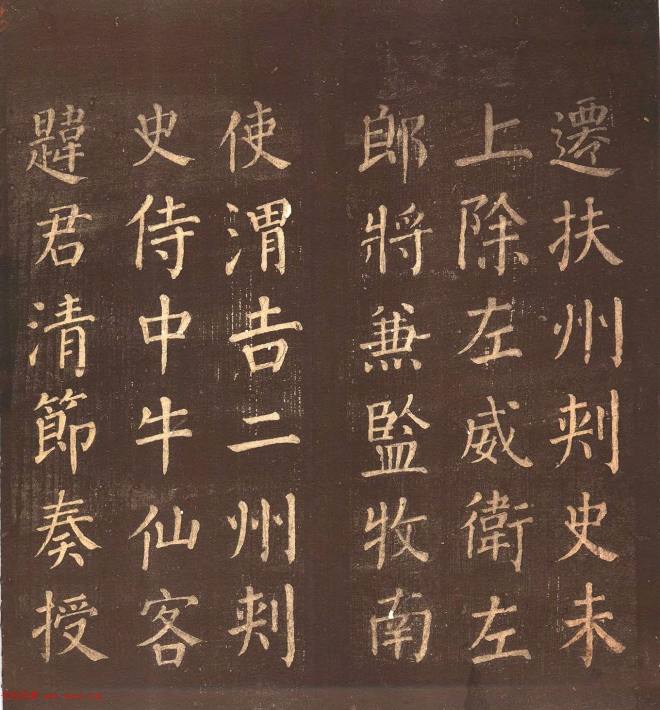 遷扶州刾史未
上除左威衛左
郎將兼監牧南
使渭吉二州刾
史侍中牛仙客
韙君清節奏授